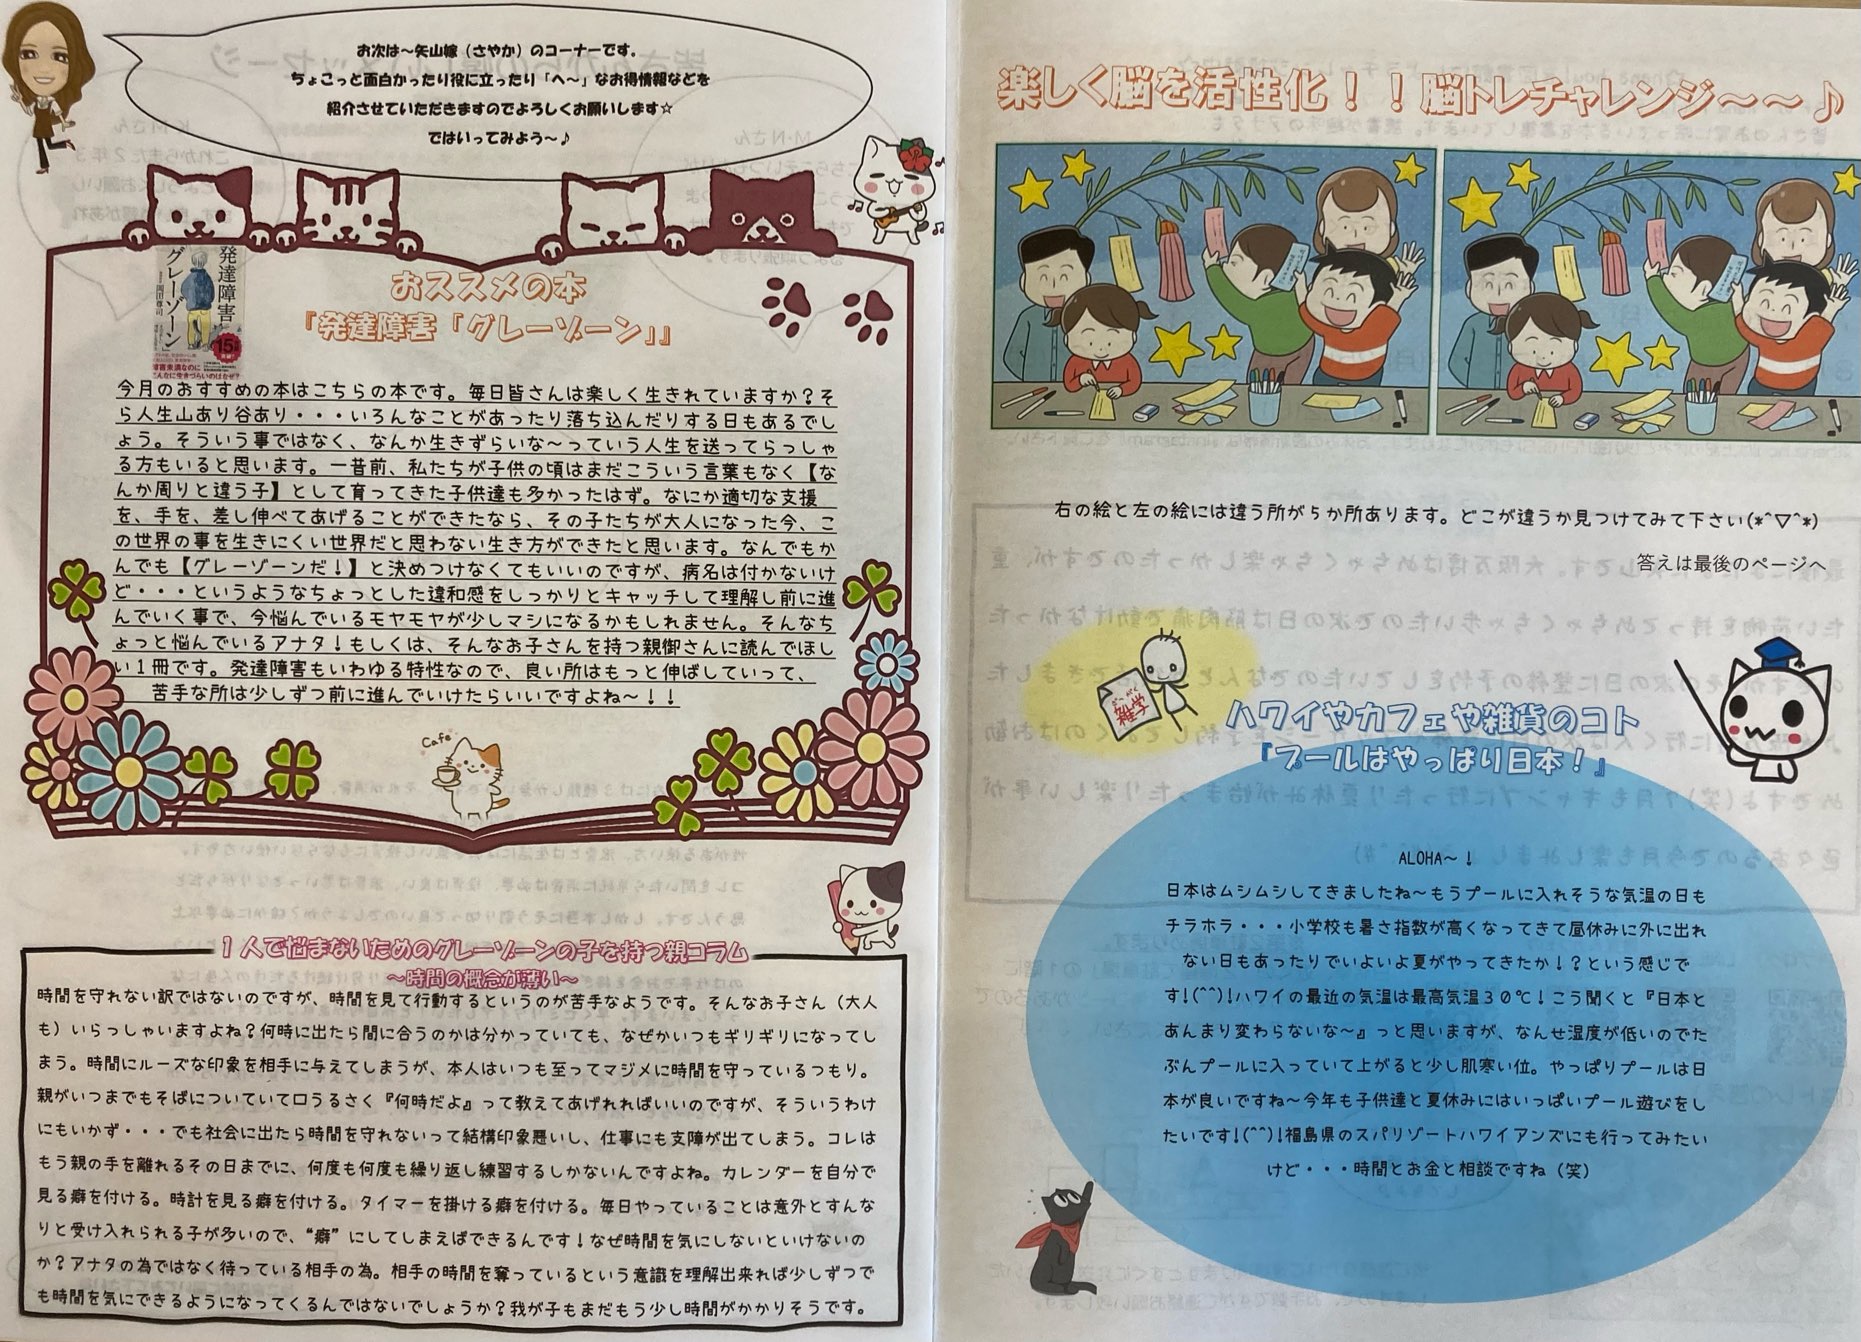 お次は～矢山嫁（さやか）のコーナーです。
ちょこっと面白かったり役に立ったり「へ～」なお得情報などを
紹介させていただきますのでよろしくお願いします☆
ではいってみよう～♪
発達障害
「グレーゾーン」
岡田尊司
15万部
突破!!
障害未満なのに
こんなに生きづらいのはなぜ?
おススメの本
『発達障害「グレーゾーン」』
今月のおすすめの本はこちらの本です。毎日皆さんは楽しく生きれていますか？そ
ら人生山あり谷あり・・・いろんなことがあったり落ち込んだりする日もあるでし
ょう。そういう事ではなく、なんか生きずらいな～っていう人生を送ってらっしゃ
る方もいると思います。一昔前、私たちが子供の頃はまだこういう言葉もなく【な
んか周りと違う子】として育ってきた子供達も多かったはず。なにか適切な支援
を、手を、差し伸べてあげることができたなら、その子たちが大人になった今、こ
の世界の事を生きにくい世界だと思わない生き方ができたと思います。なんでもか
んでも【グレーゾーンだ！】と決めつけなくてもいいのですが、病名は付かないけ
ど・・・というようなちょっとした違和感をしっかりとキャッチして理解し前に進
んでいく事で、今悩んでいるモヤモヤが少しマシになるかもしれません。そんなち
ょっと悩んでいるアナタ！もしくは、そんなお子さんを持つ親御さんに読んでほし
い１冊です。発達障害もいわゆる特性なので、良い所はもっと伸ばしていって、
苦手な所は少しずつ前に進んでいけたらいいですよね～！！
Cafe
１人で悩まないためのグレーゾーンの子を持つ親コラム
～時間の概念が薄い～
時間を守れない訳ではないのですが、時間を見て行動するというのが苦手なようです。そんなお子さん（大人
も）いらっしゃいますよね？何時に出たら間に合うのかは分かっていても、なぜかいつもギリギリになってし
まう。時間にルーズな印象を相手に与えてしまうが、本人はいつも至ってマジメに時間を守っているつもり。
親がいつまでもそばについていて口うるさく『何時だよ』って教えてあげれればいいのですが、そういうわけ
にもいかず・・・でも社会に出たら時間を守れないって結構印象悪いし、仕事にも支障が出てしまう。コレは
もう親の手を離れるその日までに、何度も何度も繰り返し練習するしかないんですよね。カレンダーを自分で
見る癖を付ける。時計を見る癖を付ける。タイマーを掛ける癖を付ける。毎日やっていることは意外とすんな
りと受け入れられる子が多いので、“癖”にしてしまえばできるんです！なぜ時間を気にしないといけないの
か？アナタの為ではなく待っている相手の為。相手の時間を奪っているという意識を理解出来れば少しずつで
も時間を気にできるようになってくるんではないでしょうか？我が子もまだもう少し時間がかかりそうです。
楽しく脳を活性化！！脳トレチャレンジ～～♪
右の絵と左の絵には違う所が５か所あります。どこが違うか見つけてみて下さい(*^▽^*)
答えは最後のページへ
雑学
ハワイやカフェや雑貨のコト
『プールはやっぱり日本！』
ALOHA～！
日本はムシムシしてきましたね～もうプールに入れそうな気温の日も
チラホラ・・・小学校も暑さ指数が高くなってきて昼休みに外に出れ
ない日もあったりでいよいよ夏がやってきたか！？という感じで
す!(^^)!ハワイの最近の気温は最高気温３０℃！こう聞くと『日本と
あんまり変わらないな～』っと思いますが、なんせ湿度が低いのでた
ぶんプールに入っていて上がると少し肌寒い位。やっぱりプールは日
本が良いですね～今年も子供達と夏休みにはいっぱいプール遊びをし
たいです!(^^)!福島県のスパリゾートハワイアンズにも行ってみたい
けど・・・時間とお金と相談ですね（笑）